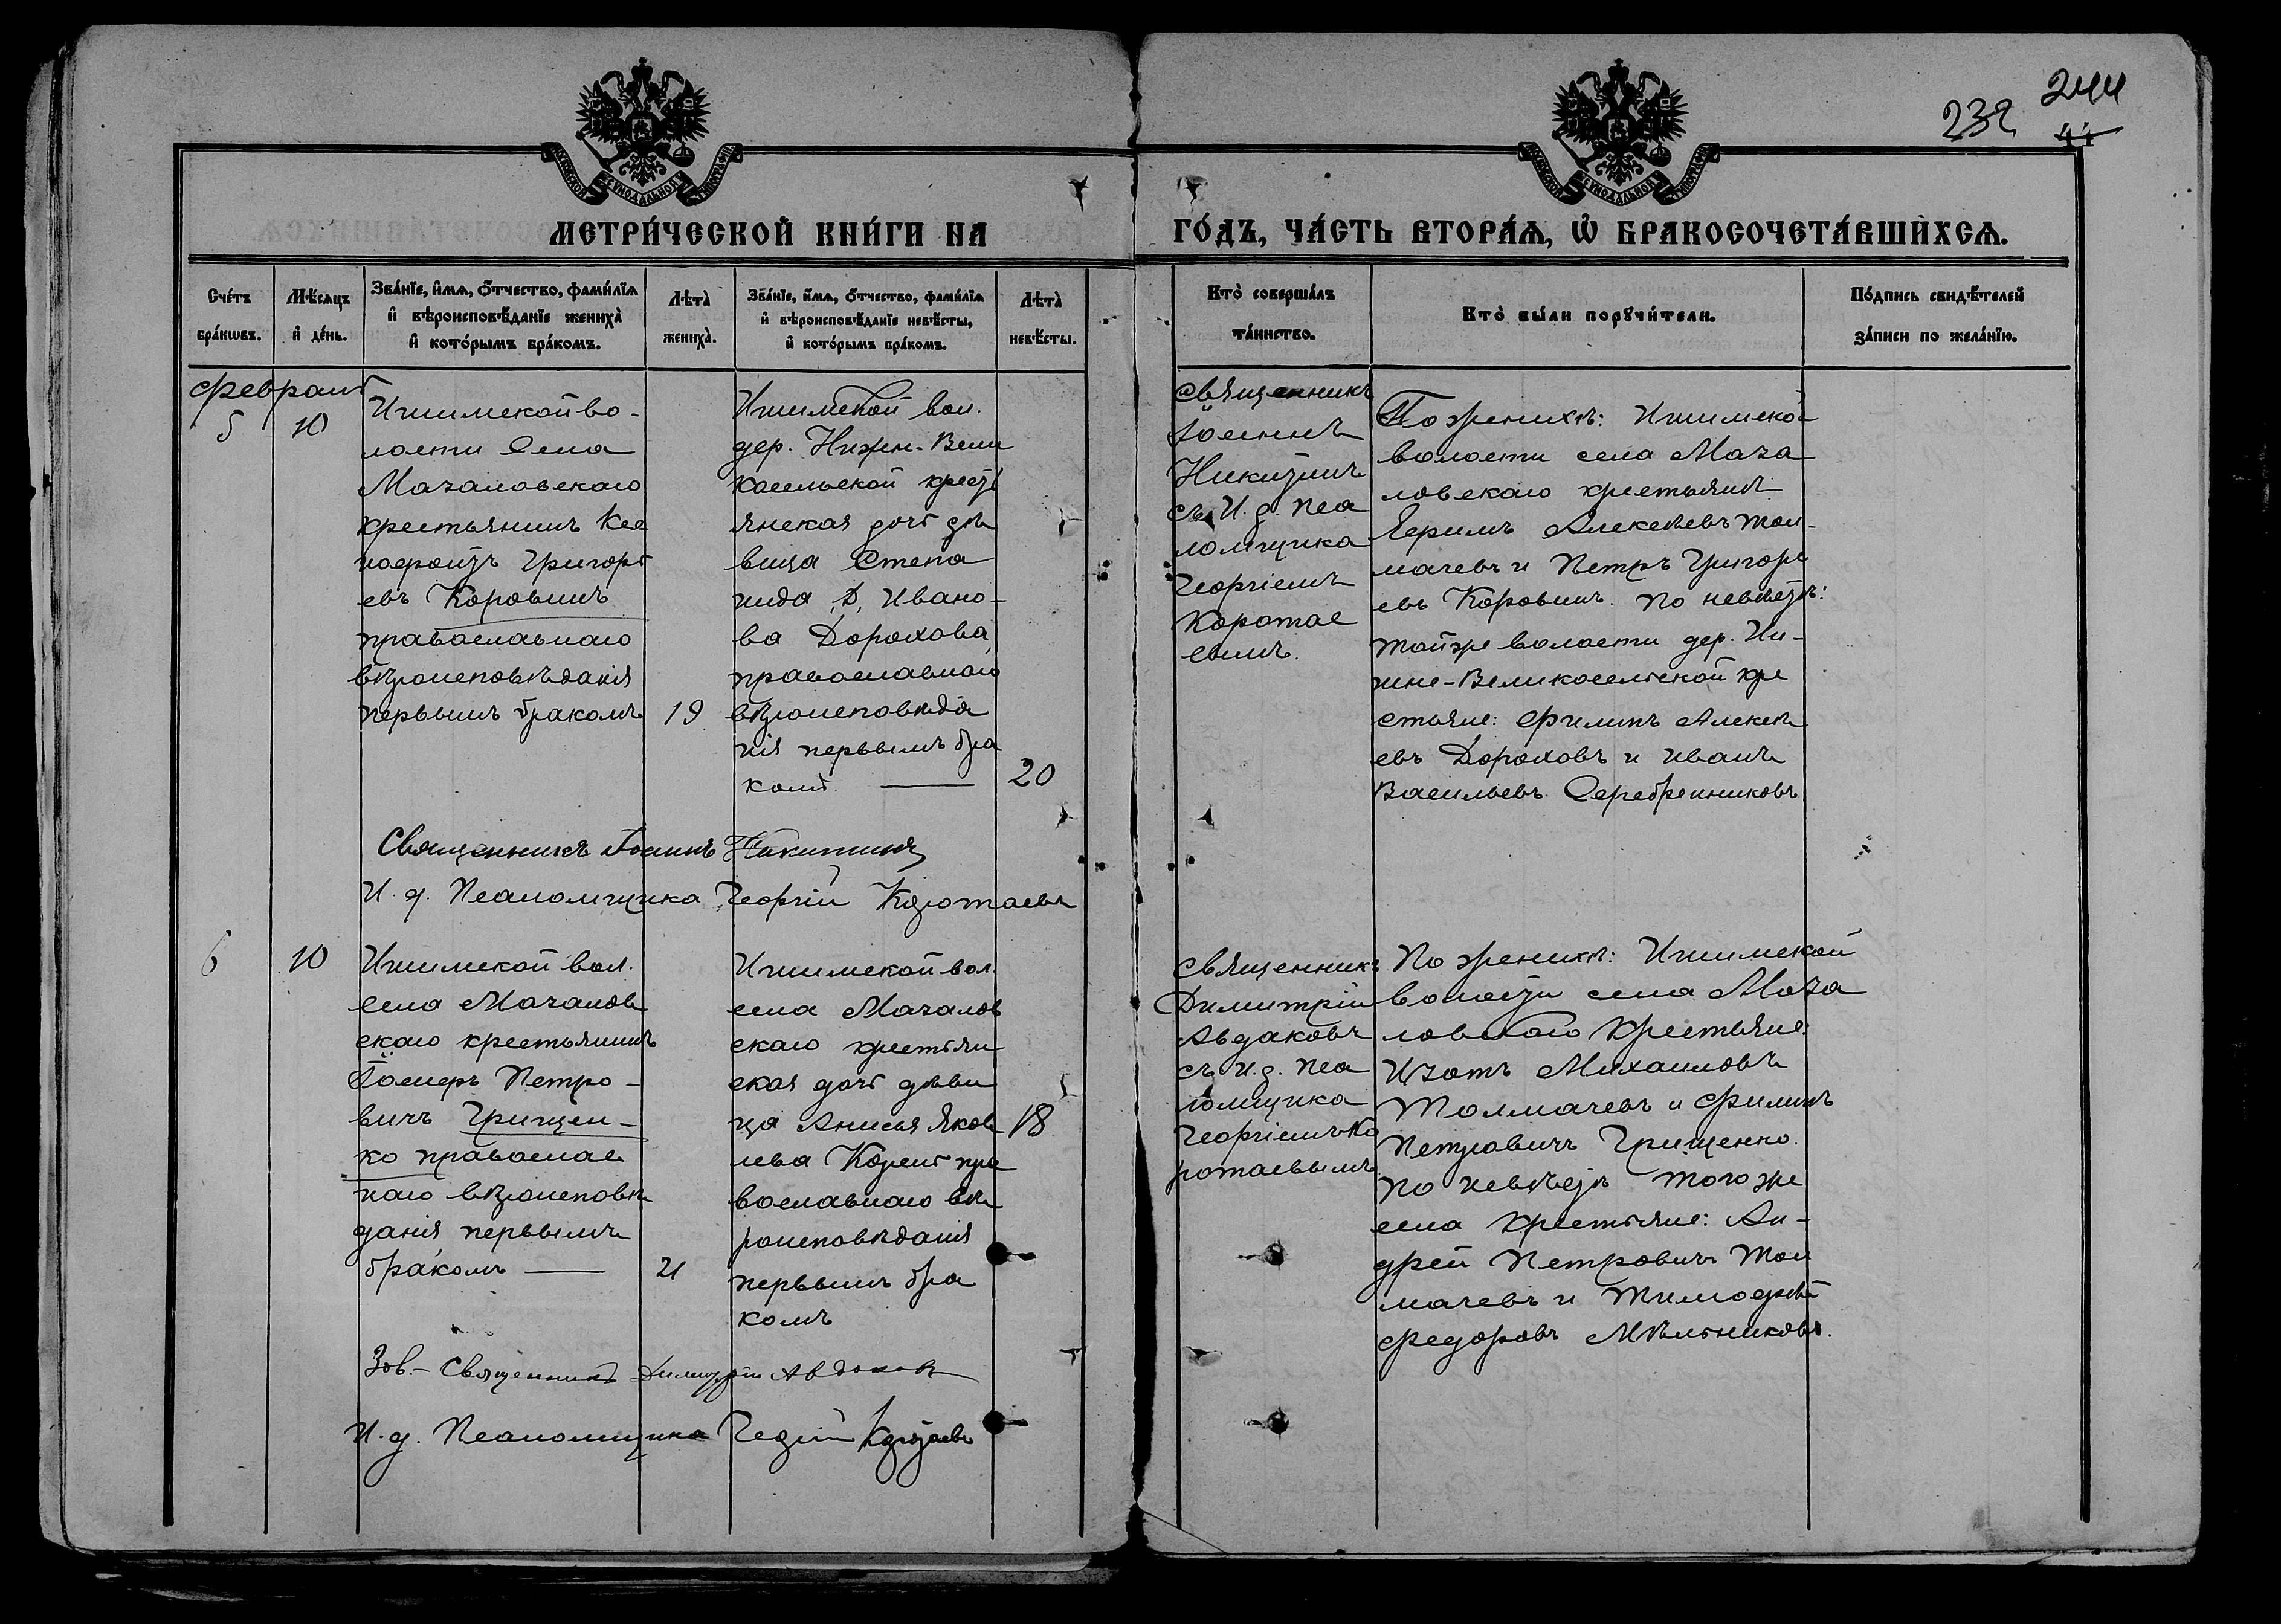 232 244
44
МОСКОВСКОЙ СѴНОДАЛЬНОЙ ТИПОГРАФІИ
МОСКОВСКОЙ СѴНОДАЛЬНОЙ ТИПОГРАФІИ
МЕТРИ́ЧЕСКОЙ КНИ́ГИ НА
ГО́ДЪ, ЧА́СТЬ ВТОРА́Ѧ, Ѡ҆ БРАКОСОЧЕТА́ВШИХСѦ.
Сче́тъ
бра́кѡвъ.
Мѣ́сѧцъ
и҆ де́нь.
Зва́нїе, и҆́мѧ, ѻ҆́тчество, фами́лїѧ
и҆ вѣроисповѣ́данїе жениха̀
и҆ кото́рымъ бра́комъ.
Лѣта̀
жениха̀.
Зва́нїе, и҆́мѧ, ѻ҆́тчество, фами́лїѧ
и҆ вѣроисповѣ́данїе невѣ́сты,
и҆ кото́рымъ бра́комъ.
Лѣта̀
невѣ́сты.
Кто̀ соверша́лъ
та́инство.
Кто̀ бы́ли порꙋчи́тели.
По́дпись свидѣ́телей
за́писи по жела́нїю.
Февраль
5
10
Ишимской во-
лости Села
Мазаловскаго
крестьянинъ
Григорь
евъ Коровинъ
православнаго
вѣроисповѣданія
первымъ бракомъ
19
Ишимской вол.
дер. Нижн-Вели
косельской крест
янская дочь дѣ
вица Степа
нида Д, Ивано-
ва Дорохова
православнаго
вѣроисповѣда
нія первымъ бра
комъ. —
20
Священникъ
Іоаннъ
Никитинъ
съ И. д. Пса
ломщика
Георгіемъ
Коротае
вымъ.
По женихѣ: Ишимской
волости села Маза
ловскаго крестьянинъ
Алексѣевъ Тол-
мачевъ и Петръ Григорь
евъ Коровинъ. По невѣстѣ:
той же волости дер. Ни-
жне-Великосельской кре
стьяне: Филипъ Алексѣ
евъ Дороховъ и Иванъ
Васильевъ Серебренниковъ
Священникъ Іоаннъ Никитинъ
И. д. Псаломщика Георгій Коротаевъ
6
10
Ишимской вол.
села Мазалов
скаго крестьянинъ
Петро-
вичъ Грищен-
ко православ
наго вѣроисповѣ
данія первымъ
бракомъ —
21
Ишимской вол.
села Мазалов
скаго крестьян
ская дочь дѣви
ца Анисья Яков
лева Корень пра
вославнаго вѣ
роисповѣданія
первымъ бра
комъ
18
Священникъ
Димитрій
Авдаковъ
съ и. д. Пса
ломщика
Георгіемъ Ко
ротаевымъ
По женихѣ: Ишимской
волости села Маза
ловскаго крестьяне:
Изотъ Михаиловъ
Толмачевъ и Филипъ
Петровичъ Грищенко.
По невѣстѣ того же
села крестьяне: Ан-
дрей Петровичъ Тол
мачевъ и Тимофей
Федоровъ Мѣльниковъ.
Зав.- Священникъ Димитрій Авдаковъ
И. д. Псаломщика Георгій Коротаевъ